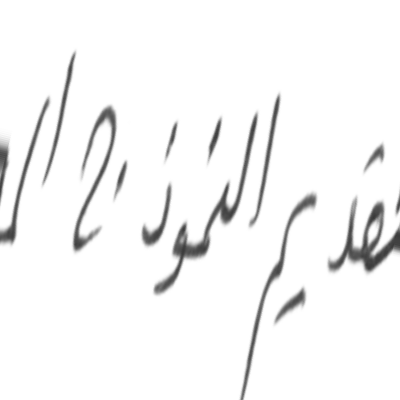 تقديم النموذج ال